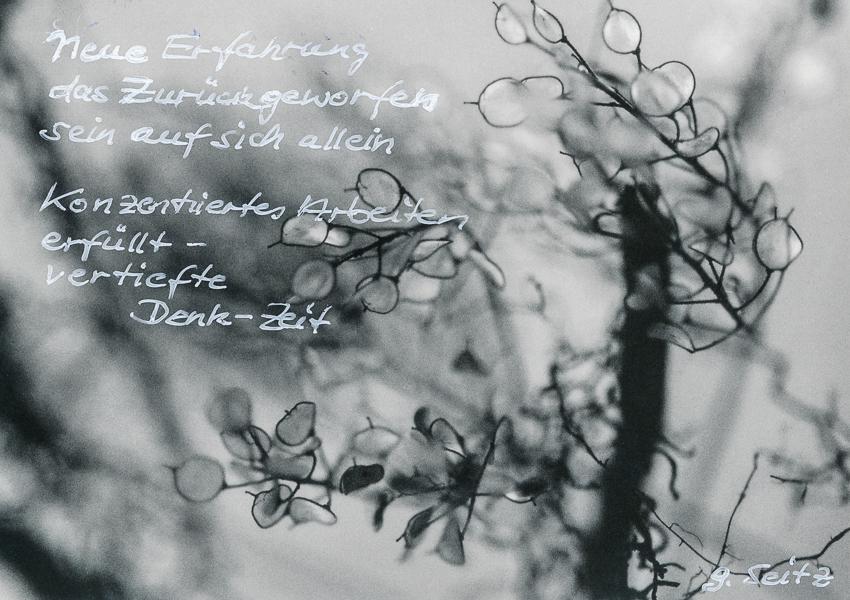 Neue Erfahrung
das Zurückgeworfen
sein auf sich allein
Konzentriertes Arbeiten
erfüllt -
vertiefte
Denk-Zeit
g. Seitz